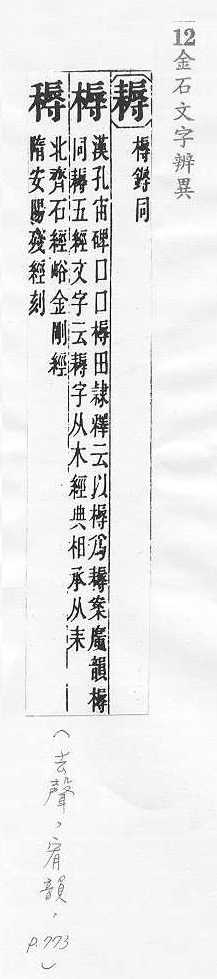 12金石文字辨異
耨
槈鎒同
槈 漢孔宙碑口口槈田隸釋云以槈為耨案廣韻槈
同耨五經文字云耨字从木經典相承从耒
耨 北齊石經峪金剛經
隋安陽殘經刻
(去聲,宥韻,P.773)